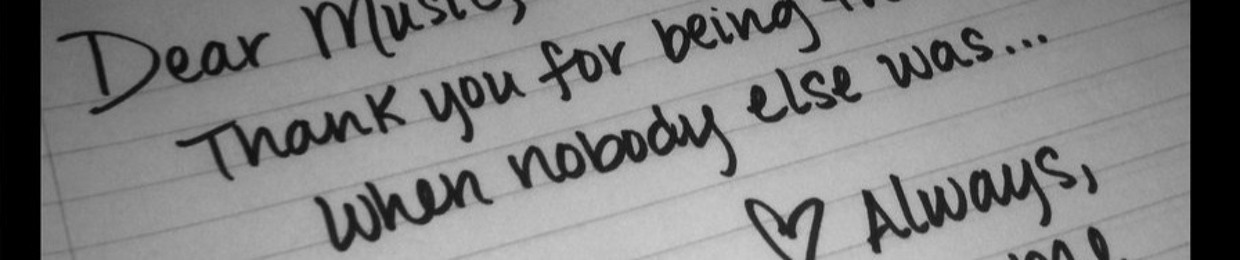 Dear Music,
Thank you for being
When nobody else was...
♡ Always,
me